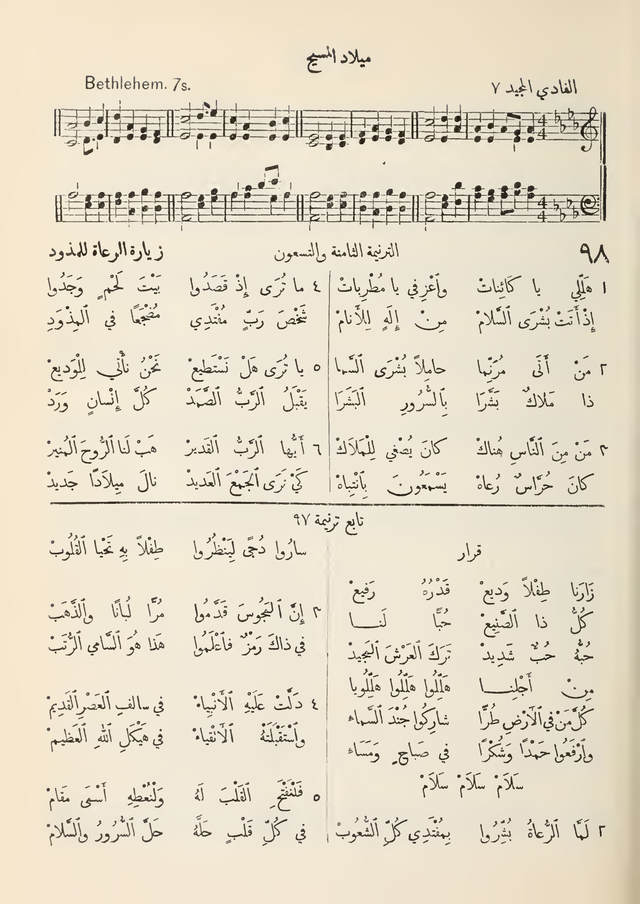 ميلاد المسيح
Bethlehem. 7s.
الفادي المجيد ٧
٩٨ الترنيمة الثامنة والتسعون زيارة الرعاة للمذود
١ هَلِّلِي يا كائِنات وٱعْزِفي يا مُطْرِبات
إِذْ أَتَتْ بُشْرَى ٱلسَّلامْ مِنْ إِلٰهٍ لِلْأَنامْ
٢ مَنْ أَتَى مُرَنِّما حامِلاً بُشْرَى ٱلسَّما
ذا مَلاكٌ بَشَّرَا بِٱلسُّرُورِ ٱلبَشَرَا
٣ مَنْ مِنَ ٱلنَّاسِ هُناك كانَ يُصْغي لِلْمَلَاك
كانَ حُرَّاسٌ رُعاهْ يَسْمَعُونَ بِٱنْتِباهْ
٤ ما تُرَى إِذْ قَصَدُوا بَيْتَ لَحْمٍ وَجَدُوا
شَخْصَ رَبٍّ مُفْتَدِي مُضْجَعًا في ٱلمِذْوَدِ
٥ يا تُرَى هَلْ نَسْتَطِيعْ نَحْنُ نأْتي لِلْوَدِيعْ
يَقْبَلُ ٱلرَّبُّ ٱلصَّمَدْ كُلَّ إِنْسانٍ وَرَدْ
٦ أَيُّها ٱلرَّبُّ ٱلقَدير هَبْ لَنا ٱلرُّوحَ ٱلمُنير
كَيْ نَرَى ٱلجَمْعَ ٱلعَديدْ نالَ مِيلادًا جَديدْ
تابع ترنيمة ٩٧
قرار
زَارَنا طِفْلاً وَديعْ قَدْرُهُ رَفيعْ
كُلُّ ذا ٱلصَّنِيعْ حُبًّا لَنا
حُبُّهُ حُبٌّ شَدِيدْ تَرَكَ ٱلعَرْشَ ٱلمَجيدْ
مِنْ أَجْلِنا هَلِّلُوا هَلِّلُوا هَلِّلُويا
كُلُّ مَنْ في ٱلأَرْضِ طُرًّا شارِكُوا جُنْدَ ٱلسَّماءْ
وٱرْفَعُوا حَمْدًا وَشُكْرًا في صَباحٍ وَمَسَاءْ
سَلَامْ سَلَامْ سَلَامْ
٢ لَمَّا ٱلرُّعاةُ بُشِّرُوا بِمُفْتَدِي كُلِّ ٱلشُّعُوبْ
سارُوا دُجًى لِيَنْظُرُوا طِفْلًا بِهِ تَحْيا ٱلقُلُوبْ
٣ إِنَّ ٱلمَجُوسَ قَدَّمُوا مُرًّا لُبانًا وٱلذَّهَبْ
في ذاكَ رَمْزٌ فٱعْلَمُوا هذا هُوَ ٱلسَّامي ٱلرُّتَبْ
٤ دَلَّتْ عَلَيْهِ ٱلأَنْبِياءْ في سالِفِ ٱلعَصْرِ ٱلقَدِيمْ
وٱسْتَقْبَلَتْهُ ٱلأَتْقِياءْ في هَيْكَلِ ٱللهِ ٱلعَظِيمْ
٥ فَلْنَفْتَحِ ٱلقَلْبَ لَهُ وَلْنُعْطِهِ أَسْمَى مَقامْ
في كُلِّ قَلْبٍ حَلَّهُ حَلَّ ٱلسُّرُورُ وٱلسَّلامْ